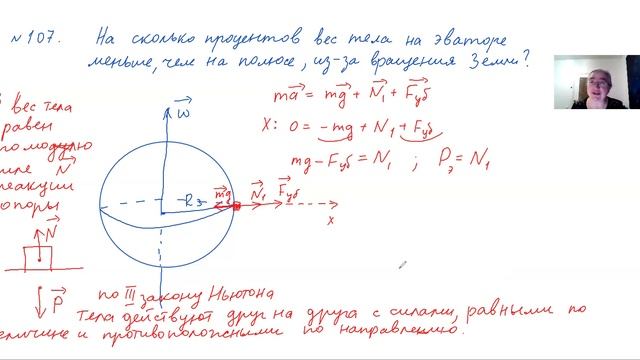 №107. На сколько процентов вес тела на экваторе
меньше, чем на полюсе, из-за вращения Земли?
вес тела
равен
по модулю
силе N⃗
реакции
опоры
N⃗
P⃗
ω⃗
R₃
mg⃗
N⃗₁
F⃗уб
x
ma⃗ = mg⃗ + N⃗₁ + F⃗уб
X: 0 = -mg + N₁ + Fуб
mg - Fуб = N₁ ; Pэ = N₁
по III закону Ньютона
Тела действуют друг на друга с силами, равными по
величине и противоположными по направлению.